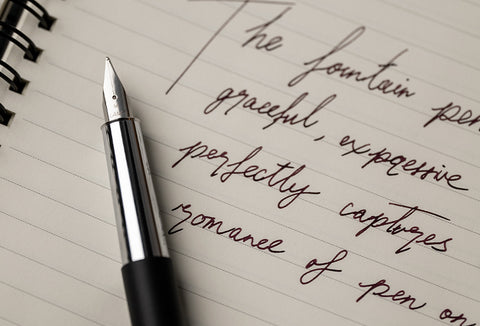 The fountain pen
graceful, expressive
perfectly captures
romance of pen on